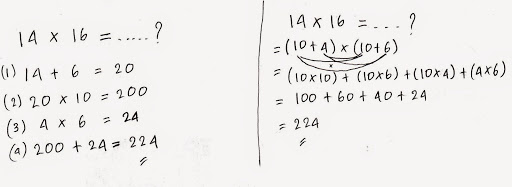 14 x 16 = ..... ?
(1) 14 + 6 = 20
(2) 20 x 10 = 200
(3) 4 x 6 = 24
(a) 200 + 24 = 224
14 x 16 = ... ?
= (10+4) x (10+6)
= (10x10) + (10x6) + (10x4) + (4x6)
= 100 + 60 + 40 + 24
= 224